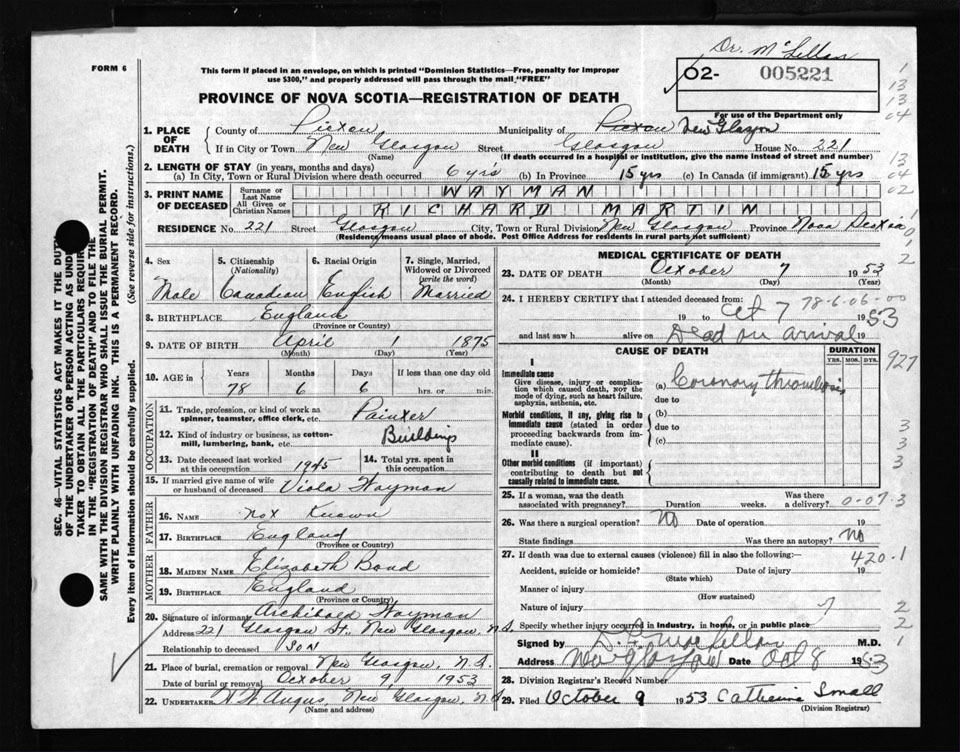 Dr. McLellan
FORM 6
This form if placed in an envelope, on which is printed "Dominion Statistics—Free, penalty for improper
use $300," and properly addressed will pass through the mail "FREE"
O2- 005221
For use of the Department only
PROVINCE OF NOVA SCOTIA—REGISTRATION OF DEATH
1. PLACE OF DEATH County of Pictou Municipality of Pictou New Glasgow
If in City or Town New Glasgow (Name) Street Glasgow House No. 221
(If death occurred in a hospital or institution, give the name instead of street and number)
2. LENGTH OF STAY (in years, months and days)
(a) In City, Town or Rural Division where death occurred 6 yrs (b) In Province 15 yrs (c) In Canada (if immigrant) 15 yrs
3. PRINT NAME OF DECEASED Surname or Last Name WAYMAN
All Given or Christian Names RICHARD MARTIN
RESIDENCE No. 221 Street Glasgow City, Town or Rural Division New Glasgow Province Nova Scotia
(Residency means usual place of abode. Post Office Address for residents in rural parts not sufficient)
4. Sex Male
5. Citizenship (Nationality) Canadian
6. Racial Origin English
7. Single, Married, Widowed or Divorced (write the word) Married
8. BIRTHPLACE England
(Province or Country)
9. DATE OF BIRTH April 1 1875
(Month) (Day) (Year)
10. AGE in Years Months Days If less than one day old
78 6 6 hrs. or min.
OCCUPATION
11. Trade, profession, or kind of work as spinner, teamster, office clerk, etc. Painter
12. Kind of industry or business, as cotton-mill, lumbering, bank, etc. Buildings
13. Date deceased last worked at this occupation 1945
14. Total yrs. spent in this occupation
15. If married give name of wife or husband of deceased Viola Wayman
FATHER
16. NAME Not Known
17. BIRTHPLACE England
(Province or Country)
MOTHER
18. MAIDEN NAME Elizabeth Bond
19. BIRTHPLACE England
(Province or Country)
20. Signature of informant Archibald Wayman
Address 221 Glasgow St., New Glasgow, N.S.
Relationship to deceased SON
21. Place of burial, cremation or removal New Glasgow, N.S.
Date of burial or removal October 9, 1953
22. UNDERTAKER W W Angus, New Glasgow, N S
(Name and address)
MEDICAL CERTIFICATE OF DEATH
23. DATE OF DEATH October 7 1953
(Month) (Day) (Year)
24. I HEREBY CERTIFY that I attended deceased from:
78-6-06-00
19 to Oct 7 1953
and last saw h alive on Dead on arrival 19
CAUSE OF DEATH
DURATION
YRS. MOS. DYS.
I
Immediate cause
Give disease, injury or complication which caused death, NOT the mode of dying, such as heart failure, asphyxia, asthenia, etc.
(a) Coronary thrombosis
due to
Morbid conditions, if any, giving rise to immediate cause (stated in order proceeding backwards from immediate cause).
(b)
due to
(c)
II
Other morbid conditions (if important) contributing to death but not causally related to immediate cause.
25. If a woman, was the death associated with pregnancy? Duration weeks Was there a delivery?
0-07-3
26. Was there a surgical operation? No Date of operation 19
State findings Was there an autopsy? No
27. If death was due to external causes (violence) fill in also the following:—
420.1
Accident, suicide or homicide? Date of injury 19
(State which)
Manner of injury
(How sustained)
Nature of injury
Specify whether injury occurred in industry, in home, or in public place
Signed by M.D.
Address New Glasgow Date Oct 8 1953
28. Division Registrar's Record Number
29. Filed October 9 1953 Catherine Small
(Division Registrar)
SEC. 46—VITAL STATISTICS ACT MAKES IT THE DUTY
OF THE UNDERTAKER OR PERSON ACTING AS UNDER
TAKER TO OBTAIN ALL THE PARTICULARS REQUIR
IN THE "REGISTRATION OF DEATH" AND TO FILE THE
SAME WITH THE DIVISION REGISTRAR WHO SHALL ISSUE THE BURIAL PERMIT.
WRITE PLAINLY WITH UNFADING INK. THIS IS A PERMANENT RECORD.
Every item of information should be carefully supplied. (See reverse side for instructions.)
1
13
13
04
13
04
02
2
927
3
3
3
2
2
1